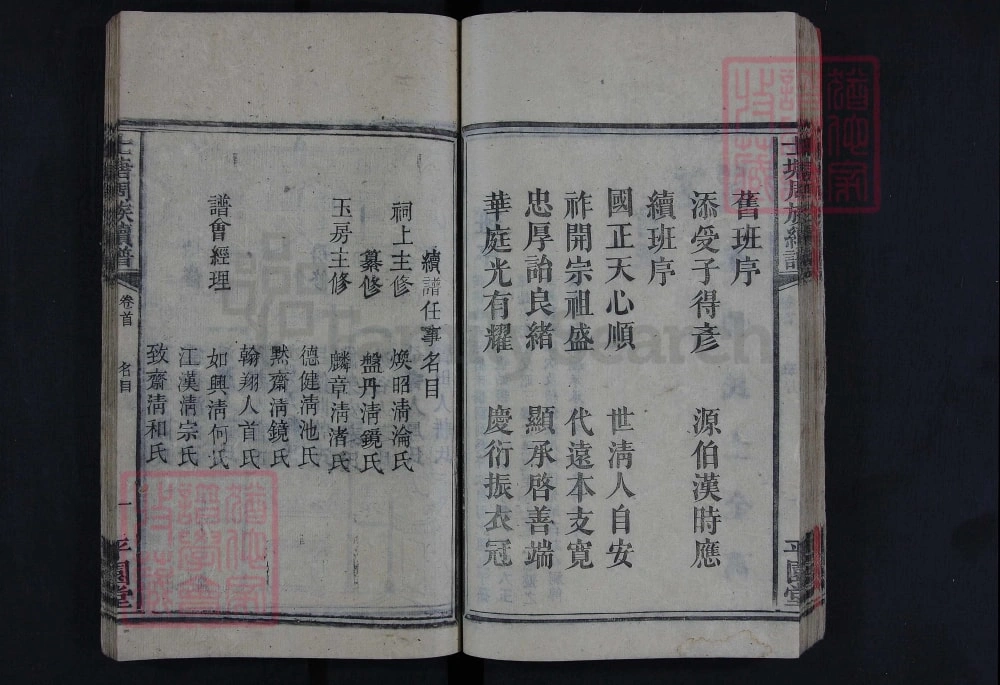 士塘周族續譜
平園堂
舊班序
添受子得彥 源伯漢時應
續班序
國正天心順 世淸人自安
祚開宗祖盛 代遠本支寬
忠厚詒良緒 顯承啓善端
華庭光有耀 慶衍振衣冠
續譜任事名目
祠上主修 煥昭淸淪氏
纂修 盤丹淸鏡氏
玉房主修 麟章淸渚氏
德健淸池氏
黙齋淸鏡氏
翰翔人首氏
譜會經理 如興淸何氏
江漢淸宗氏
致齋淸和氏
士塘周族續譜 卷首 名目 一 平園堂